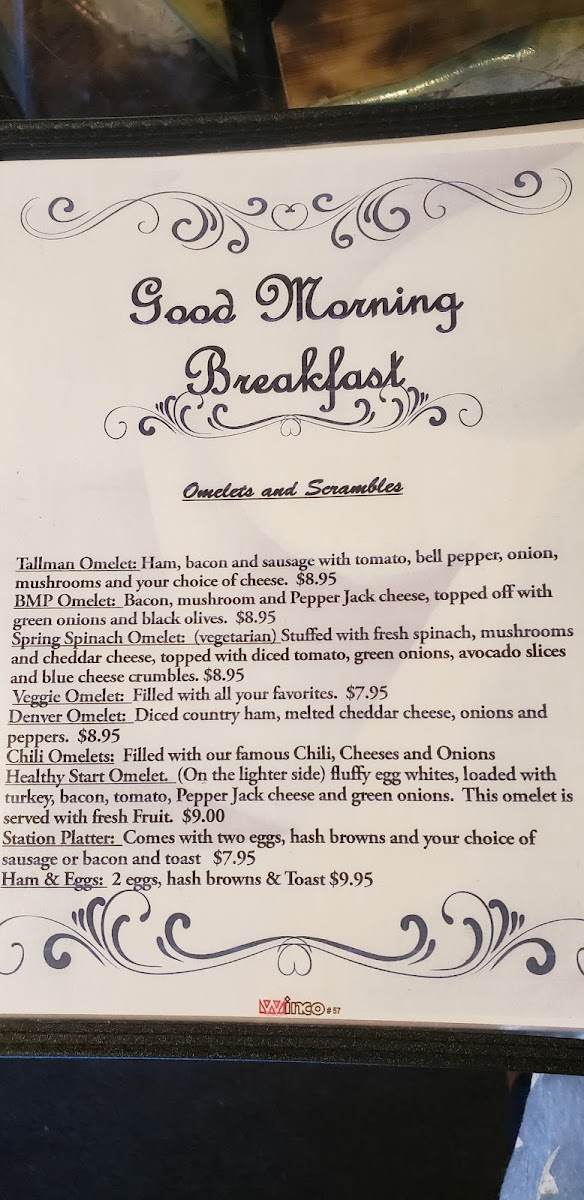 Good Morning
Breakfast
Omelets and Scrambles
Tallman Omelet: Ham, bacon and sausage with tomato, bell pepper, onion,
mushrooms and your choice of cheese. $8.95
BMP Omelet: Bacon, mushroom and Pepper Jack cheese, topped off with
green onions and black olives. $8.95
Spring Spinach Omelet: (vegetarian) Stuffed with fresh spinach, mushrooms
and cheddar cheese, topped with diced tomato, green onions, avocado slices
and blue cheese crumbles. $8.95
Veggie Omelet: Filled with all your favorites. $7.95
Denver Omelet: Diced country ham, melted cheddar cheese, onions and
peppers. $8.95
Chili Omelets: Filled with our famous Chili, Cheeses and Onions
Healthy Start Omelet. (On the lighter side) fluffy egg whites, loaded with
turkey, bacon, tomato, Pepper Jack cheese and green onions. This omelet is
served with fresh Fruit. $9.00
Station Platter: Comes with two eggs, hash browns and your choice of
sausage or bacon and toast $7.95
Ham & Eggs: 2 eggs, hash browns & Toast $9.95
Winco #57